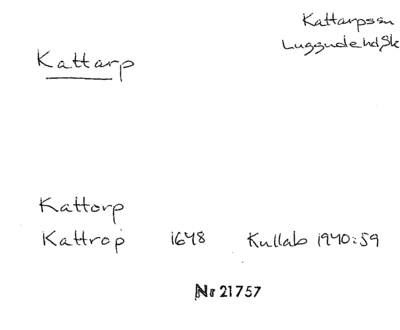 Kattarpssn
Luggude hd Sk
Kattarp
Kattorp
Kattrop 1648 Kullab 1940:59
Nr 21757